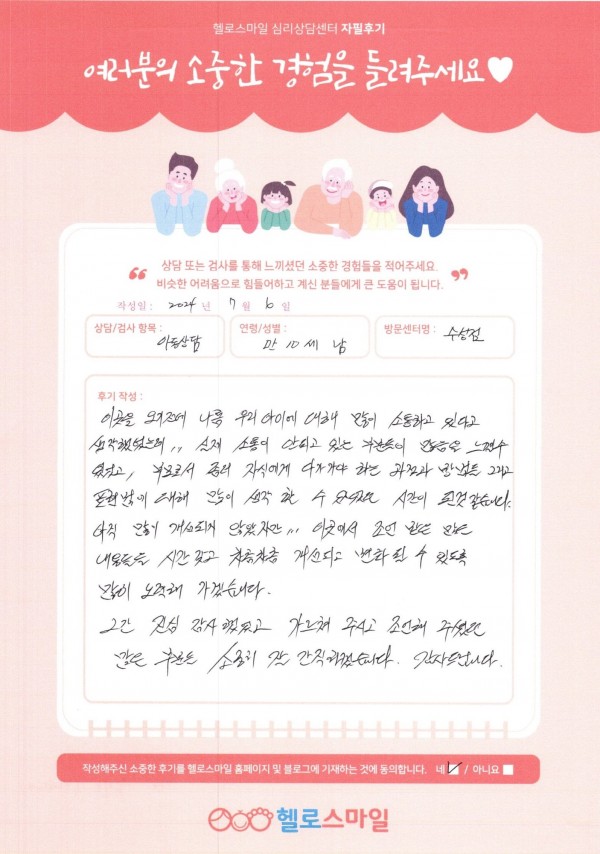 헬로스마일 심리상담센터 자필후기
여러분의 소중한 경험을 들려주세요
상담 또는 검사를 통해 느끼셨던 소중한 경험들을 적어주세요.
비슷한 어려움으로 힘들어하고 계신 분들에게 큰 도움이 됩니다.
작성일 : 2024 년 7 월 6 일
상담/검사 항목 : 아동상담
연령/성별 : 만 10세 남
방문센터명 : 수성점
후기 작성 :
이곳을 오기전에 나름 우리 아이에 대해 많이 소통하고 있다고
생각했었는데,,, 실제 소통이 안되고 있는 부분들이 많음을 느낄수
있었고, 부모로서 좀더 자식에게 다가가야 하는 과정과 방법들 그리고
표현법에 대해 많이 생각 할 수 있었던 시간이 된것 같습니다.
아직 많이 개선되지 않았지만,,, 이곳에서 조언 받은 많은
내용들을 시간갖고 차츰차츰 개선되고 변화 될 수 있도록
많이 노력해 가겠습니다.
그간 진심 감사했었고 가르쳐 주시고 조언해 주셨던
많은 부분들 소중히 잘 간직하겠습니다. 감사드립니다.
작성해주신 소중한 후기를 헬로스마일 홈페이지 및 블로그에 기재하는 것에 동의합니다. 네 / 아니요
헬로스마일